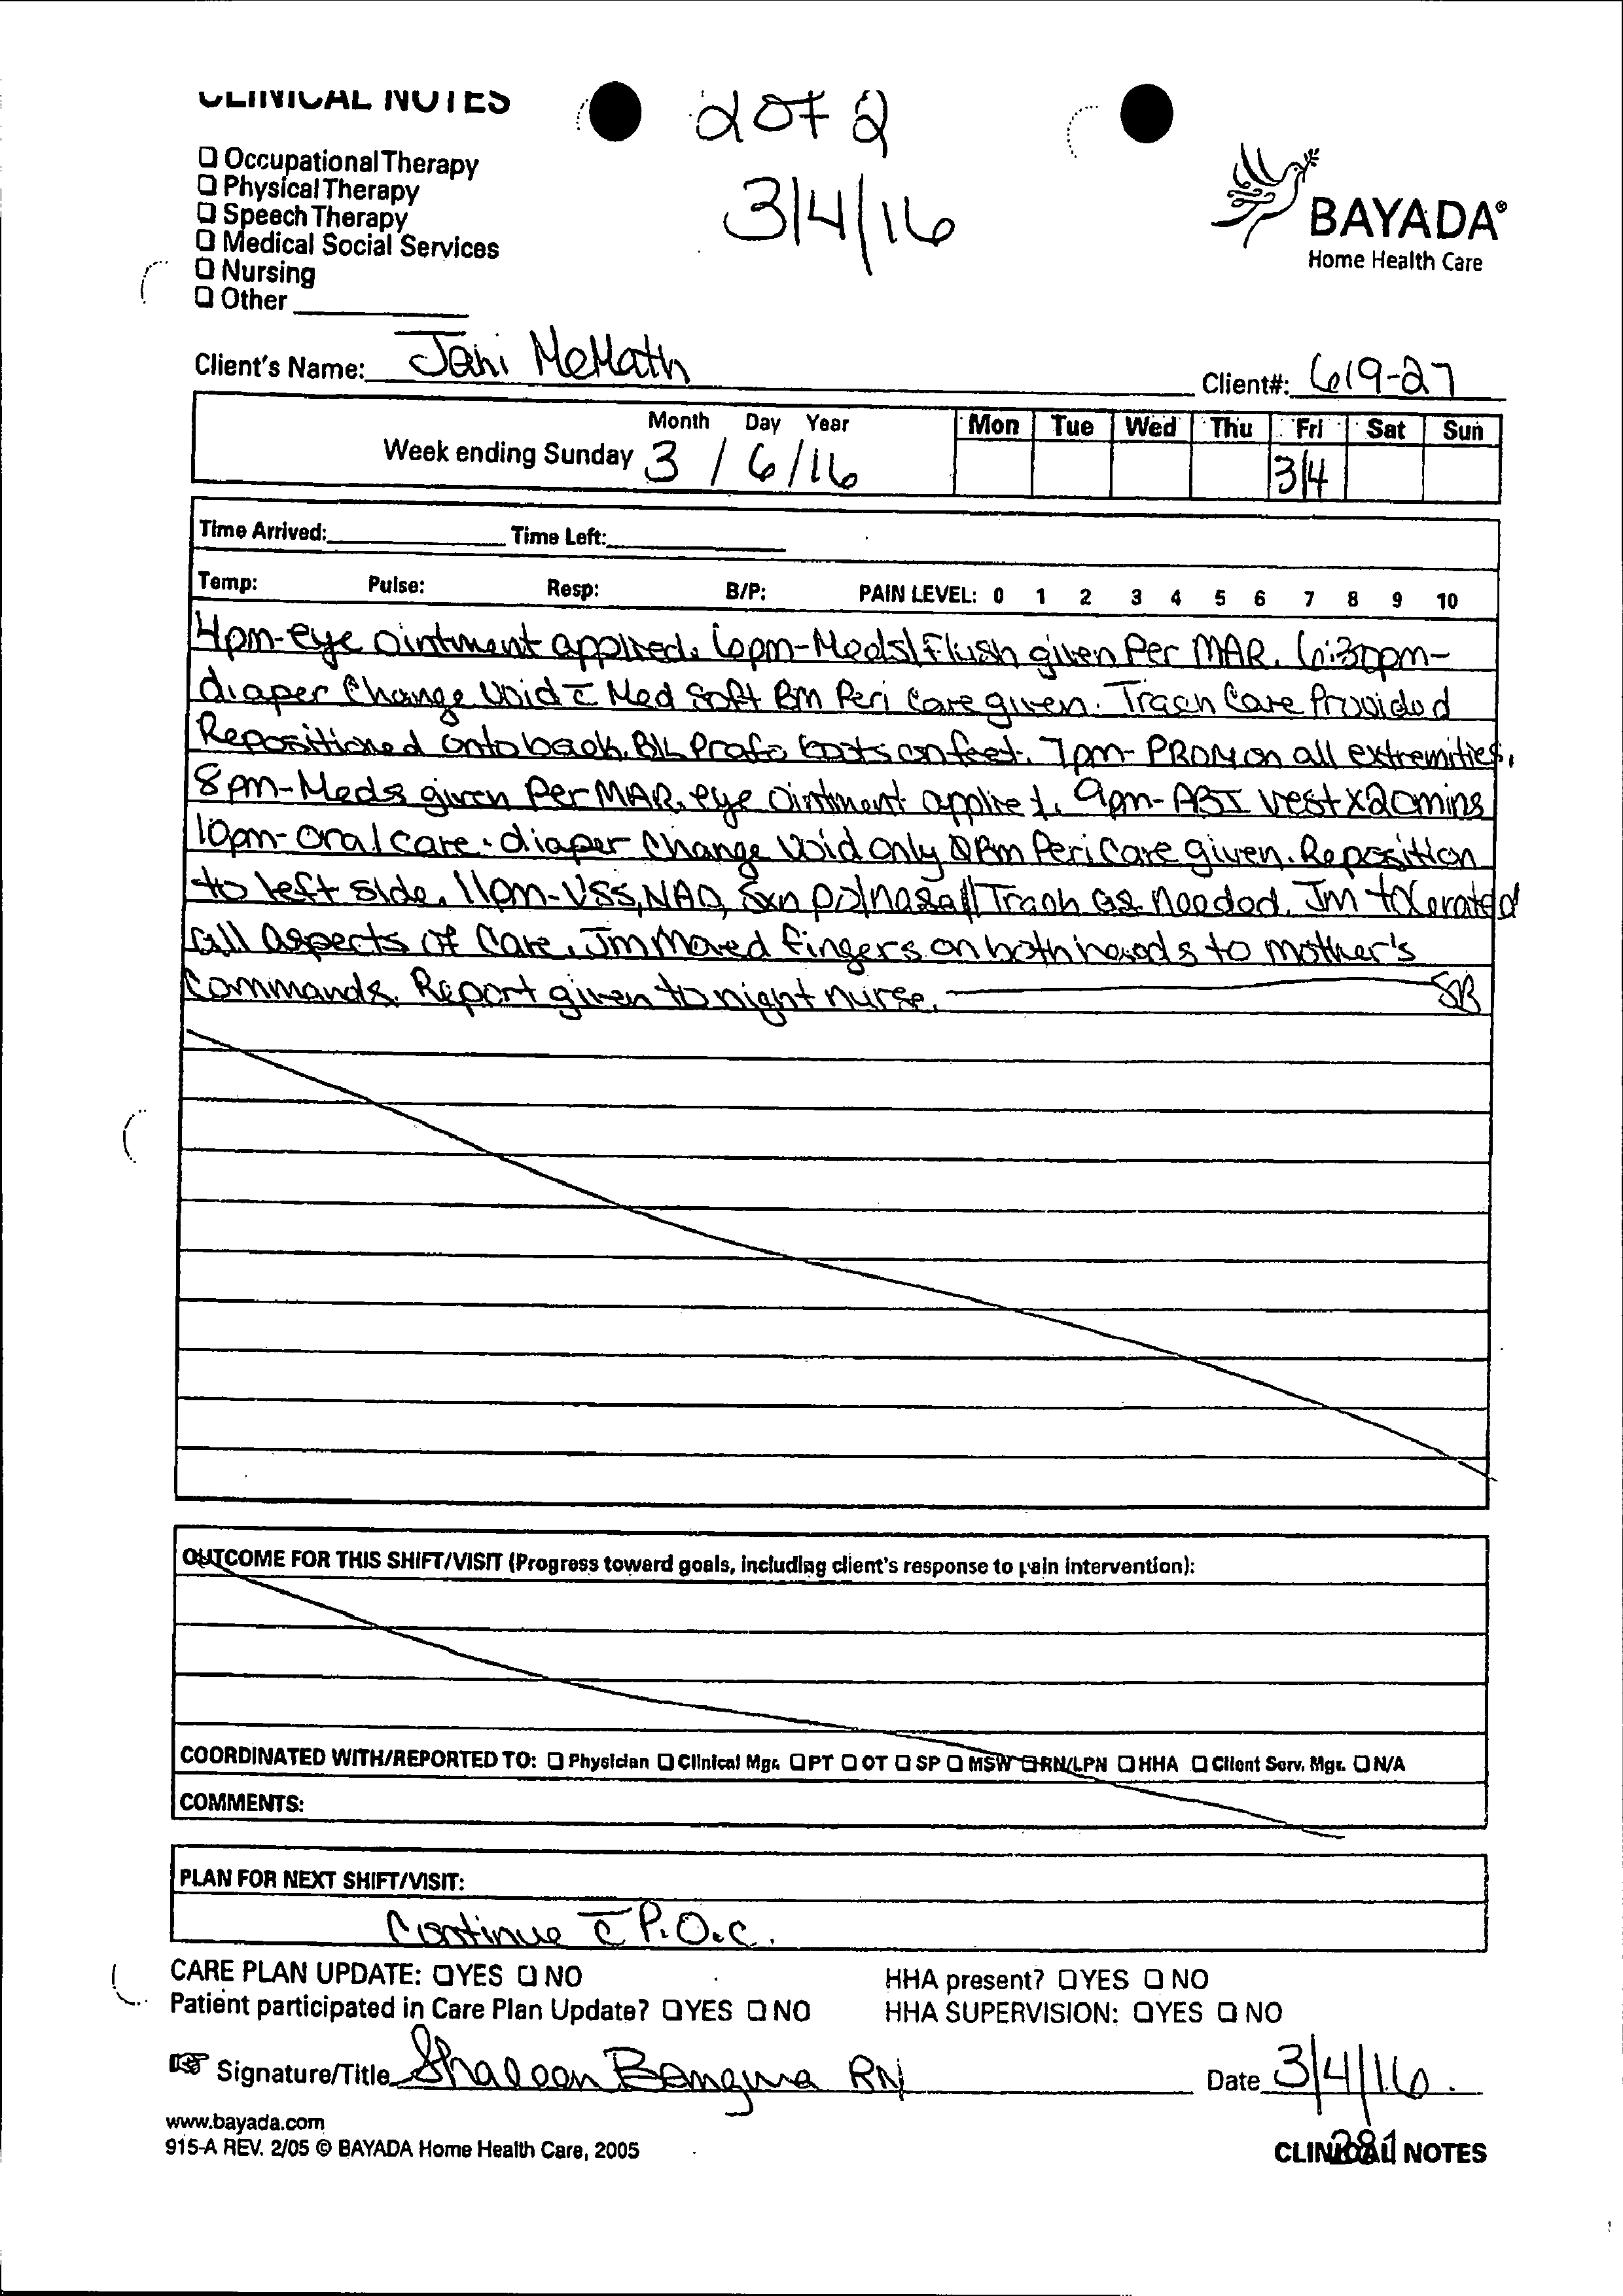 CLINICAL NOTES
2 of 2
3/4/16
☐ Occupational Therapy
☐ Physical Therapy
☐ Speech Therapy
☐ Medical Social Services
☐ Nursing
☐ Other
BAYADA®
Home Health Care
Client's Name: Jahi McMath Client#: 619-27
Month Day Year Mon Tue Wed Thu Fri Sat Sun
Week ending Sunday 3 / 6 / 16 3/4
Time Arrived: Time Left:
Temp: Pulse: Resp: B/P: PAIN LEVEL: 0 1 2 3 4 5 6 7 8 9 10
4pm-eye ointment applied. 6pm-Meds/Flush given Per MAR. 6:30pm-
diaper Change Void c̄ Med Soft Bm Peri Care given. Trach Care Provided
Repositioned onto back. B/L Prafo boots on feet. 7pm- PROM on all extremities.
8pm-Meds given Per MAR. eye ointment applied. 9pm-ABI vest x20mins
10pm-oral care. diaper Change Void only Ø Bm Peri Care given. Reposition
to left side. 11pm-VSS, NAD, Sxn po/nasal/Trach as needed. Jm tolerated
all aspects of Care. Jm Moved fingers on both hands to mother's
Commands. Report given to night nurse. SB
OUTCOME FOR THIS SHIFT/VISIT (Progress toward goals, including client's response to pain intervention):
COORDINATED WITH/REPORTED TO: ☐ Physician ☐ Clinical Mgr. ☐ PT ☐ OT ☐ SP ☐ MSW ☐ RN/LPN ☐ HHA ☐ Client Serv. Mgr. ☐ N/A
COMMENTS:
PLAN FOR NEXT SHIFT/VISIT:
Continue c̄ P.O.C.
CARE PLAN UPDATE: ☐ YES ☐ NO HHA present? ☐ YES ☐ NO
Patient participated in Care Plan Update? ☐ YES ☐ NO HHA SUPERVISION: ☐ YES ☐ NO
Signature/Title Shaleon Bangura RN Date 3/4/16.
www.bayada.com
915-A REV. 2/05 © BAYADA Home Health Care, 2005
CLINICAL NOTES
281